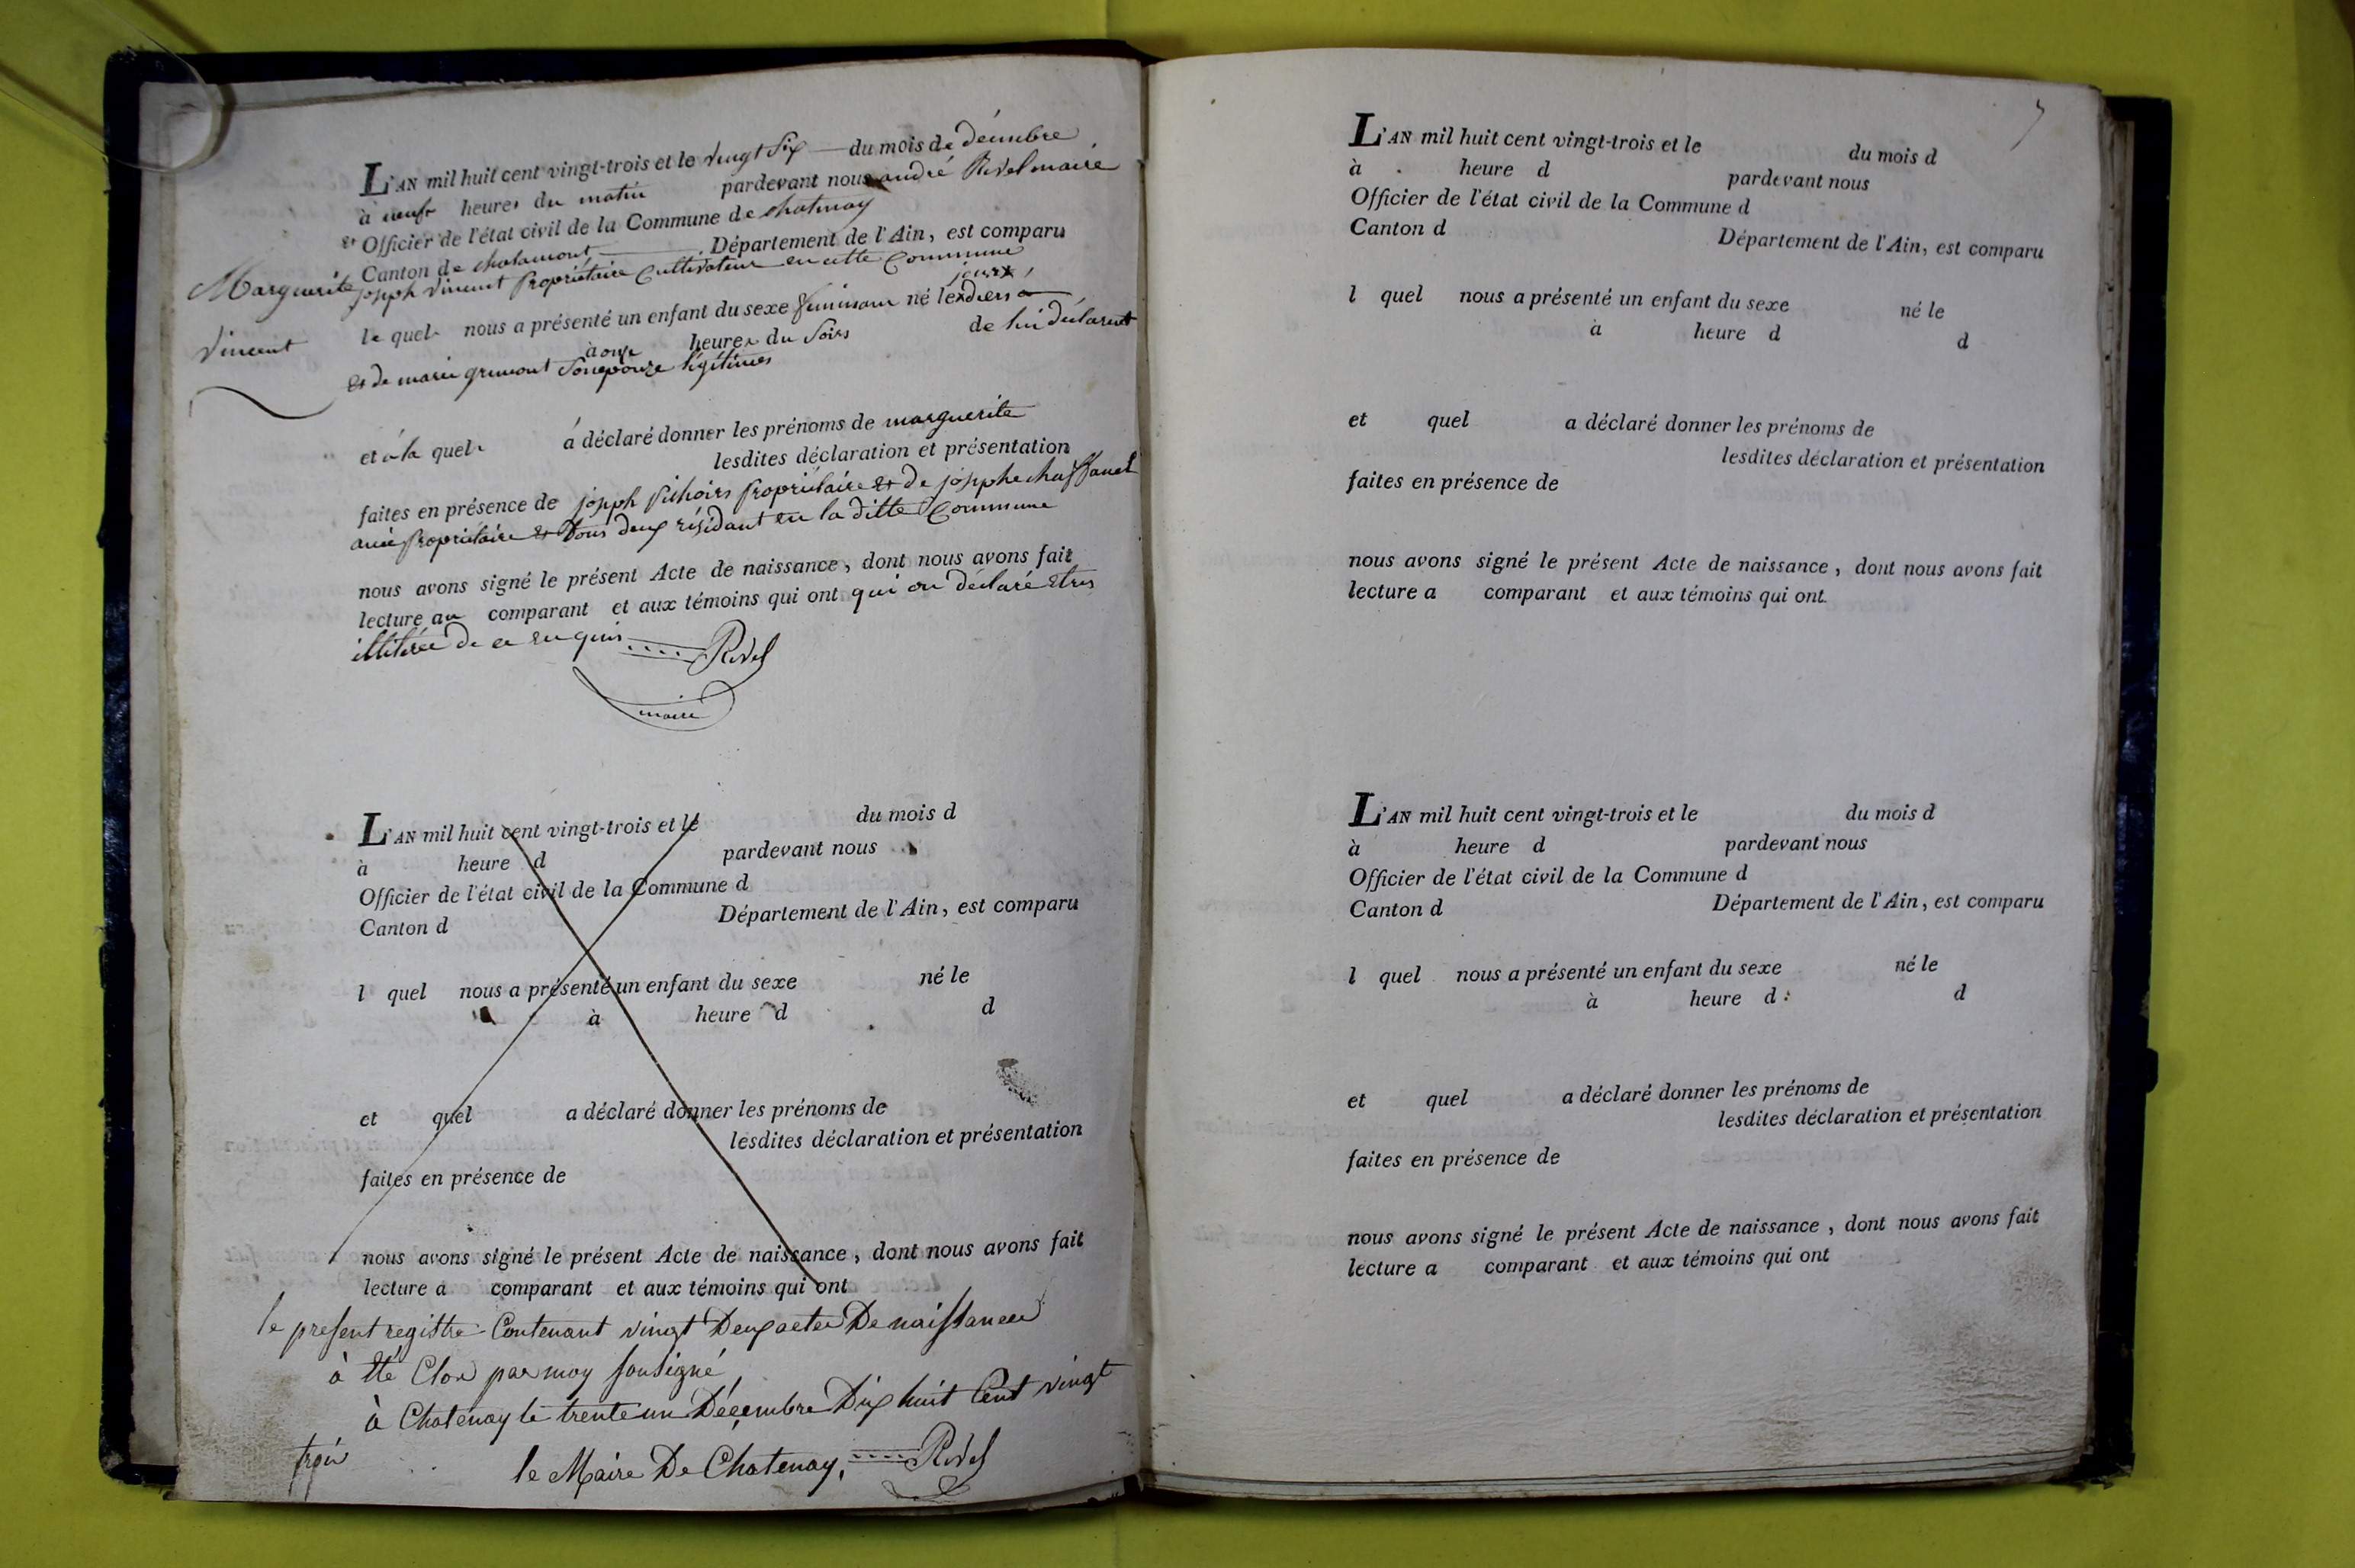 L'AN mil huit cent vingt-trois et le vingt six du mois de décembre
à neufs heures du matin pardevant nous andré Rivel maire
et Officier de l'état civil de la Commune de chatenay
Canton de chalamont Département de l'Ain, est comparu
Marguerite joseph vincent propriétaire Cultivateur en cette Commune
le quel nous a présenté un enfant du sexe feminain né le jours
Vincent
à onze heures du soirs de lui déclarent
et de marie grumont son epouze légitimes
et à la quel à déclaré donner les prénoms de marguerite
lesdites déclaration et présentation
faites en présence de joseph propriétaire et de josephe
propriétaire et tous deux résidant en la ditte Commune
nous avons signé le présent Acte de naissance, dont nous avons fait
lecture au comparant et aux témoins qui ont qui on déclaré etres
illitérée de ce enquis Rivel
maire
L'AN mil huit cent vingt-trois et le du mois d
à heure d pardevant nous
Officier de l'état civil de la Commune d
Canton d Département de l'Ain, est comparu
l quel nous a présenté un enfant du sexe né le
à heure d d
et quel a déclaré donner les prénoms de
lesdites déclaration et présentation
faites en présence de
nous avons signé le présent Acte de naissance, dont nous avons fait
lecture a comparant et aux témoins qui ont
le present registre Contenant vingt Deux actes De naissances
à été Clos par moy sousigné
à Chatenay le trente un Décembre Dix huit Cent vingt
trois
le Maire De Chatenay, Rivel
L'AN mil huit cent vingt-trois et le du mois d
à heure d pardevant nous
Officier de l'état civil de la Commune d
Canton d Département de l'Ain, est comparu
l quel nous a présenté un enfant du sexe né le
à heure d d
et quel a déclaré donner les prénoms de
lesdites déclaration et présentation
faites en présence de
nous avons signé le présent Acte de naissance, dont nous avons fait
lecture a comparant et aux témoins qui ont
L'AN mil huit cent vingt-trois et le du mois d
à heure d pardevant nous
Officier de l'état civil de la Commune d
Canton d Département de l'Ain, est comparu
l quel nous a présenté un enfant du sexe né le
à heure d d
et quel a déclaré donner les prénoms de
lesdites déclaration et présentation
faites en présence de
nous avons signé le présent Acte de naissance, dont nous avons fait
lecture a comparant et aux témoins qui ont